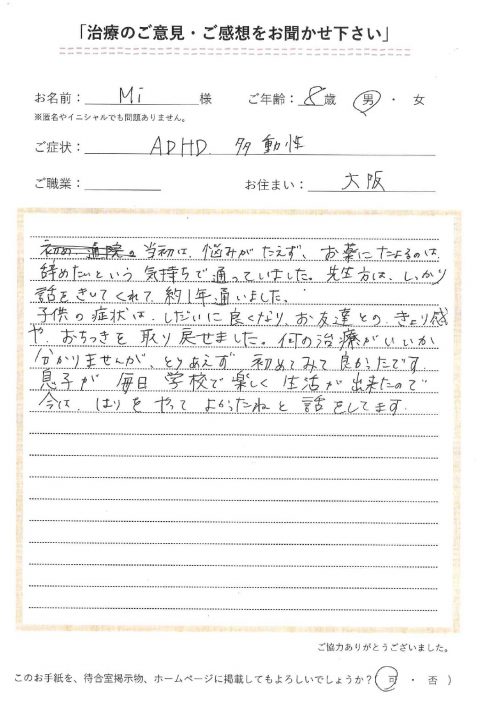 「治療のご意見・ご感想をお聞かせ下さい」
お名前： Mi 様 ご年齢： 8 歳 男 ・ 女
※匿名やイニシャルでも問題ありません。
ご症状： ADHD. 多動性
ご職業： お住まい： 大阪
当初は、悩みがたえず、お薬にたよるのは、
辞めたいという気持ちで通っていました。先生方は、しっかり
話をきいてくれて、約1年通いました、
子供の症状は、しだいに良くなり お友達との、きょり感
や、おちつきを取り戻せました。何の治療がいいか、
分かりませんが、とりあえず 初めてみて良かったです。
息子が 毎日 学校で楽しく 生活が出来たので
今は、はりをやってよかったねと 話をしてます.
ご協力ありがとうございました。
このお手紙を、待合室掲示物、ホームページに掲載してもよろしいでしょうか？（ 可 ・ 否 ）